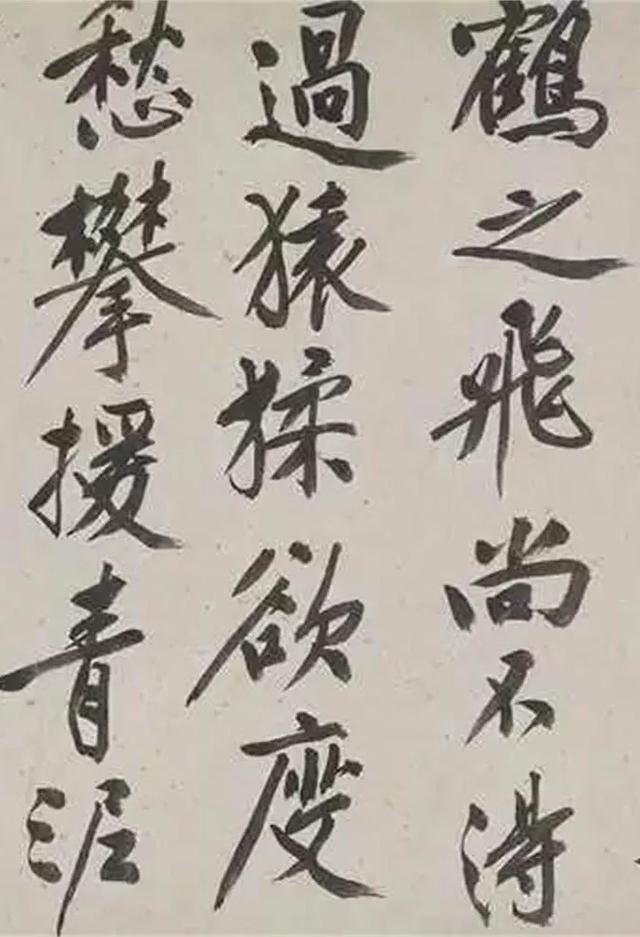 鶴之飛尚不得
過猿猱欲度
愁攀援青泥